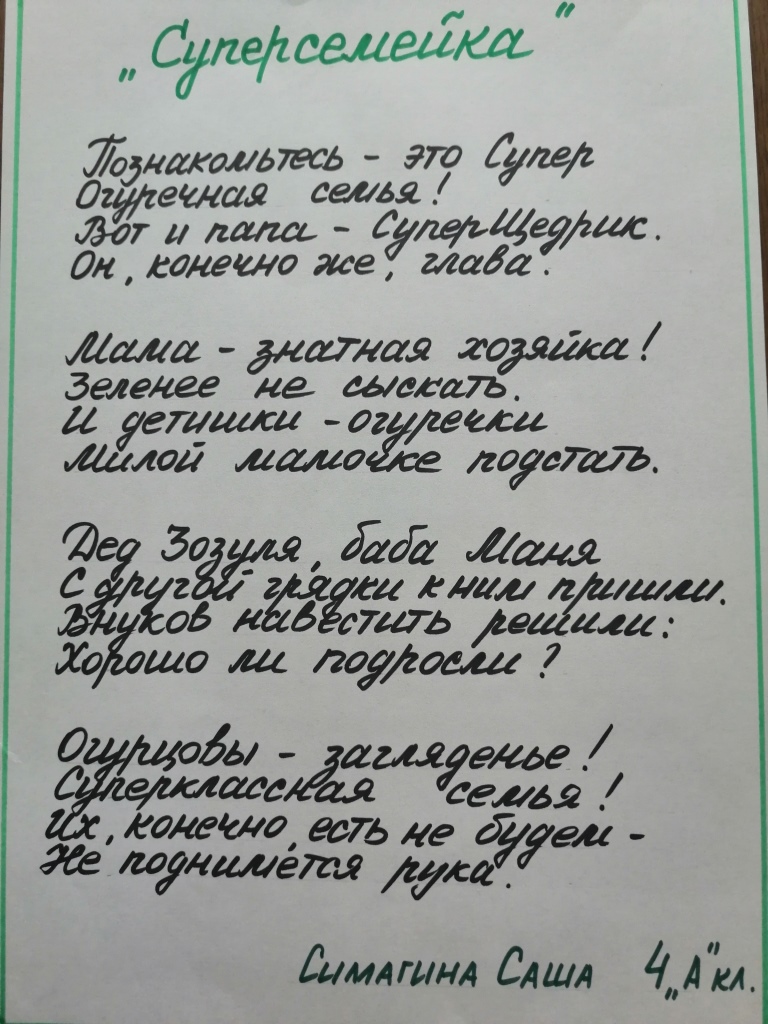 „Суперсемейка"
Познакомьтесь - это Супер
Огуречная семья!
Вот и папа - СуперЩедрик.
Он, конечно же, глава.
Мама - знатная хозяйка!
Зеленее не сыскать.
И детишки - огуречки
Милой мамочке подстать.
Дед Зозуля, баба Маня
С другой грядки к ним пришли.
Внуков навестить решили:
Хорошо ли подросли?
Огурцовы - загляденье!
Суперклассная семья!
Их, конечно, есть не будем -
Не поднимется рука.
Симагина Саша 4 „А" кл.